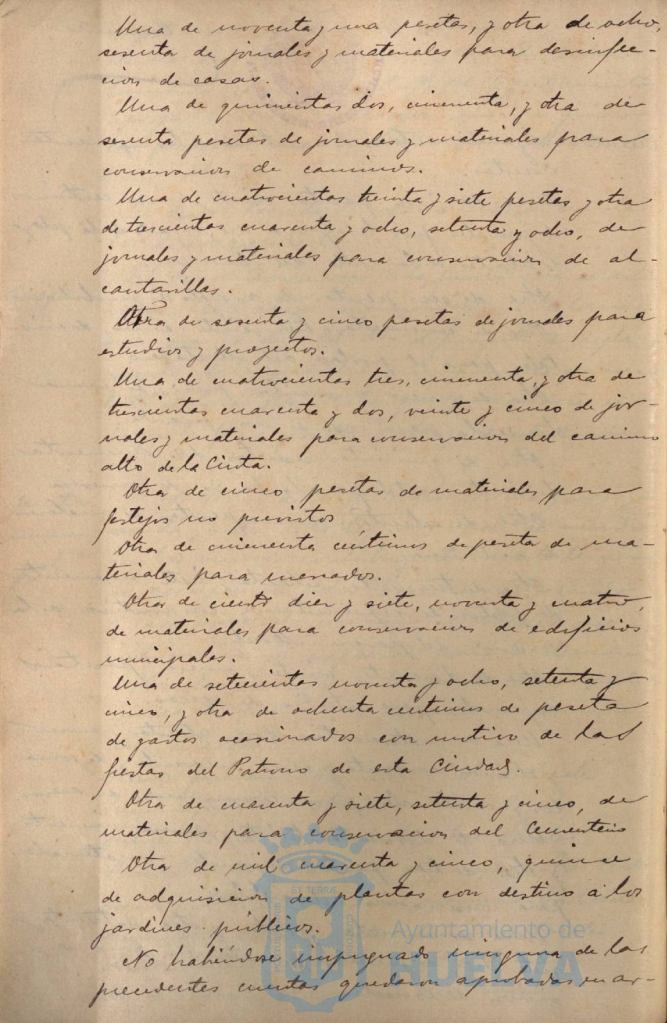 Una de noventa y una pesetas, y otra de ocho,
sesenta de jornales y materiales para desinfec-
cion de casas.
Una de quinientas dos, cincuenta, y otra de
sesenta pesetas de jornales y materiales para
conservacion de caminos.
Una de cuatrocientas treinta y siete pesetas y otra
de trescientas cuarenta y ocho, setenta y ocho, de
jornales y materiales para conservacion de al-
cantarillas.
Otra de sesenta y cinco pesetas de jornales para
estudios y proyectos.
Una de cuatrocientas tres, cincuenta, y otra de
trescientas cuarenta y dos, veinte y cinco de jor-
nales y materiales para conservacion del camino
alto de la Cinta.
Otra de cinco pesetas de materiales para
festejos no previstos
Otra de cincuenta céntimos de peseta de ma-
teriales para mercados.
Otra de ciento diez y siete, noventa y cuatro,
de materiales para conservacion de edificios
municipales.
Una de setecientas noventa y ocho, setenta y
cinco, y otra de ochenta centimos de peseta
de gastos ocasionados con motivo de las
fiestas del Patrono de esta Ciudad.
Otra de cuarenta y siete, setenta y cinco, de
materiales para conservacion del Cementerio
Otra de mil cuarenta y cinco, quince
de adquisicion de plantas con destino a los
jardines públicos.
No habiéndose impugnado ninguna de las
precedentes cuentas quedaron aprobadas en ar-
Ayuntamiento de
HUELVA